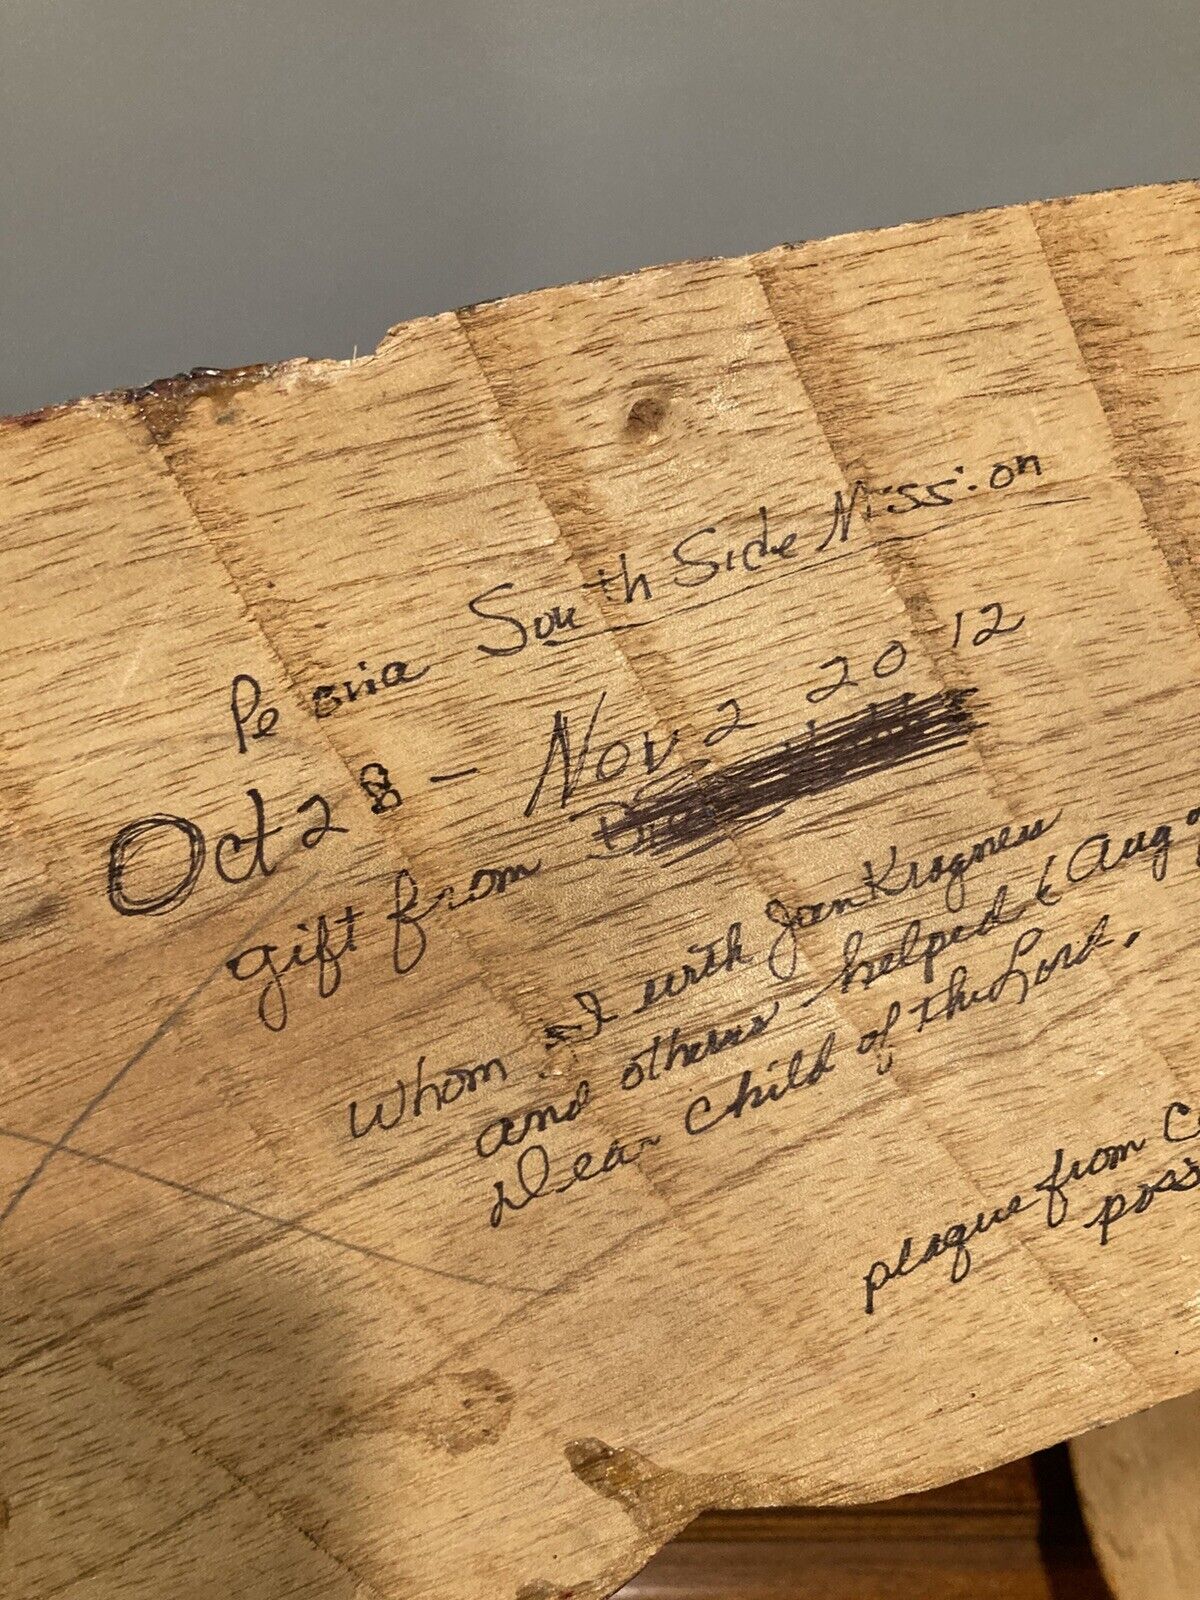 Peoria South Side Mission
Oct 28 - Nov 2 2012
gift from
whom I with Jan Krogness
and others helped
Dear child of the Lord.
plaque from